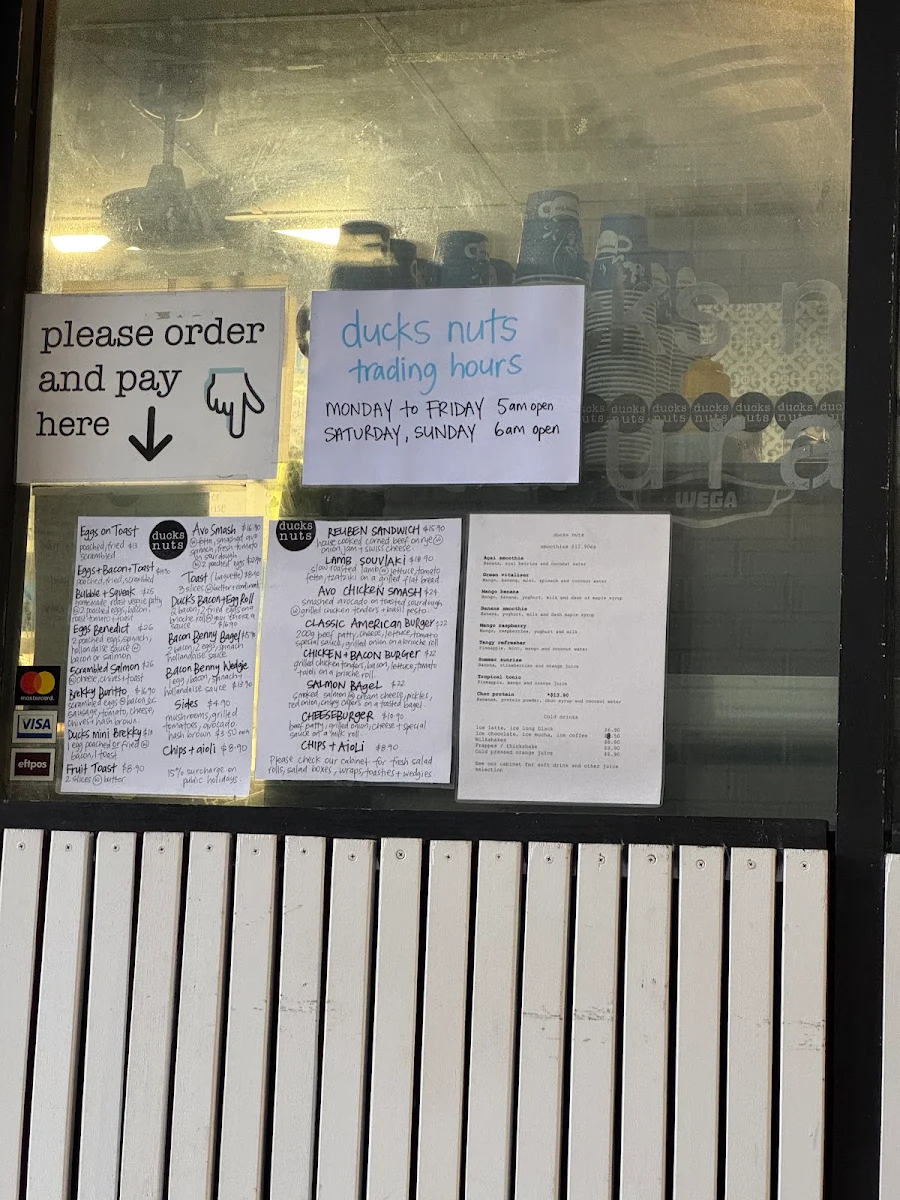 please order
and pay
here
ducks nuts
trading hours
MONDAY to FRIDAY 5am open
SATURDAY, SUNDAY 6am open
ducks nuts
ura
WEGA
Eggs on Toast $13
poached, fried
scrambled
Eggs+Bacon+Toast
poached, fried, scrambled
Bubble + Squeak $25
homemade roast veggie patty
2 poached eggs, bacon,
toast
Eggs Benedict $26
2 poached eggs, spinach,
hollandaise sauce
bacon or salmon
Scrambled Salmon $26
cheese, chives + toast
Brekky Burrito $16.90
scrambled eggs bacon
sausage, tomato, cheese,
sauce + hash brown
Ducks mini Brekky
1 egg poached or fried
bacon, 1 toast
Fruit Toast $8.90
2 slices butter
ducks
nuts
Avo Smash $16.90
feta, smashed avo
spinach, fresh tomato
on sourdough
2 poached eggs
Toast
3 slices
Duck's Bacon+Egg Roll
2 bacon, 2 fried eggs on a
brioche roll
sauce $16.90
Bacon Benny Bagel
2 bacon, 2 eggs, spinach
hollandaise sauce
Bacon Benny Wedge
1 egg, bacon, spinach+
hollandaise sauce $13.90
Sides $4.90
mushrooms, grilled
tomatoes, avocado
hash brown $3.50
Chips + aioli $8.90
15% surcharge on
public holidays
ducks
nuts
REUBEN SANDWICH $15.90
house cooked corned beef on rye
onion jam + swiss cheese
LAMB SOUVLAKI $18.90
slow roasted lamb lettuce, tomato
feta, tzatziki on a grilled flat bread
AVO CHICKEN SMASH $24
smashed avocado on toasted sourdough
grilled chicken tenders + basil pesto
CLASSIC AMERICAN BURGER $22
200g beef patty, cheese, lettuce, tomato
special sauce, grilled onion on a brioche roll
CHICKEN + BACON BURGER $22
grilled chicken tenders, bacon, lettuce, tomato
+ aioli on a brioche roll
SALMON BAGEL $22
smoked salmon cream cheese, pickles,
red onion, crispy capers on a toasted bagel
CHEESEBURGER $10.90
beef patty, grilled onion, cheese + special
sauce on a milk roll
CHIPS + AIOLI $8.90
Please check our cabinet for fresh salad
rolls, salad boxes, wraps, toasties + wedgies
ducks nuts
smoothies $12.90ea
Acai smoothie
Banana, acai berries and coconut water
Green vitaliser
Mango, banana, mint, spinach and coconut water
Mango banana
Mango, banana, yoghurt, milk and dash maple syrup
Banana smoothie
Banana, yoghurt, milk and dash maple syrup
Mango raspberry
Mango, raspberries, yoghurt and milk
Tangy refresher
Pineapple, mint, mango and coconut water
Summer sunrise
Banana, strawberries and orange juice
Tropical tonic
Pineapple, mango and orange juice
Choc protein *$13.90
Banana, protein powder, choc syrup and coconut water
Cold drinks
Ice latte, ice long black
Ice chocolate, ice mocha, ice coffee
Milkshakes
Frappes / thickshake
Cold pressed orange juice
See our cabinet for soft drink and other juice
selection
mastercard.
VISA
eftpos